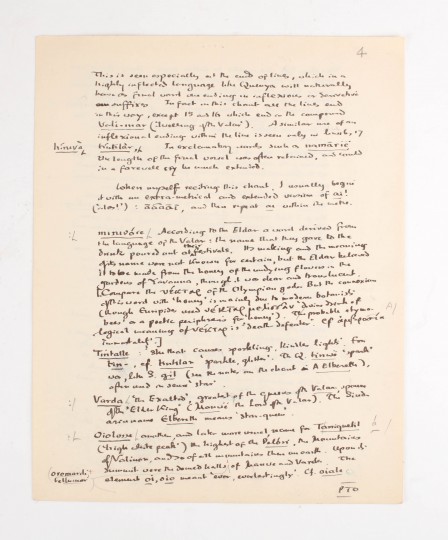 4
This is seen especially at the end of lines, which in a
highly inflected language like Quenya will naturally
have as final word one ending in inflexions or derivative
suffixes. In fact in this chant all the lines end
in this way, except 15 and 16 which end in the compound
Vali-mar (Dwelling of the Valar). A similar use of an
inflexional ending within the line is seen only in
hiruva tintilar, In exclamatory words such as namárië
the length of the final vowel was often retained, and could
in a farewell cry be much extended.
When myself reciting this chant, I usually begin
it with an extra-metrical and extended version of ai!
: āāāāāi, and then repeat ai within the metre.
miruvóre: According to the Eldar a word derived from
the language of the Valar: the name that they gave to the
drink poured out at their festivals. Its making and the meaning
of its name were not known for certain, but the Eldar believed
it to be made from the honey of the undying flowers in the
gardens of Yavanna, though it was clear and translucent.
[Compare the νέκταρ of the Olympian gods. But the connexion
of this word with 'honey' is mainly due to modern botanists
(though Euripides used νέκταρ μελισσᾶν 'divine drink of
bees' as a poetic periphrasis for 'honey'). The probable etymo-
logical meaning of νέκταρ is 'death-defeater'. Cf. ἀμβροσία
'immortal'.]
Tintalle: 'She that causes sparkling, kindle lights'. For
tin-, cf. tintilar 'sparkle, glitter'. The Q. tinwe 'spark'
was, like S. gil (in the note on the chant A Elbereth),
often used in sense 'star'.
Varda ("the Exalted"), greatest of the queens of the Valar, spouse
of the "Elder King" (Manwë the Lord of the Valar). The Sind-
arin name Elbereth means 'star-queen'.
Oiolosse: another, and later more usual name for Taniquetil
('high white peak') the highest of the Pelóri, the Mountains
of Valinor, and so of all mountains then on earth. Upon its
oromardi
tellumar
summit were the domed halls of Manwe and Varda. The
element oi, oio meant 'ever, everlastingly'. Cf. oiale
PTO